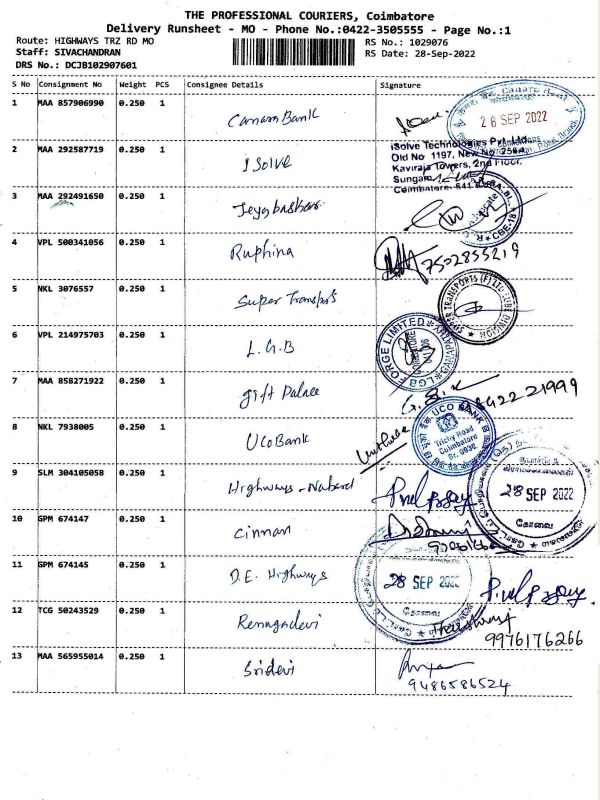 THE PROFESSIONAL COURIERS, Coimbatore
Delivery Runsheet - MO - Phone No.:0422-3505555 - Page No.:1
Route: HIGHWAYS TRZ RD MO
RS No.: 1029076
Staff: SIVACHANDRAN
RS Date: 28-Sep-2022
DRS No.: DCJB102907601
S No Consignment No Weight PCS Consignee Details Signature
1 MAA 857906990 0.250 1 Canara Bank
28 SEP 2022
2 MAA 292587719 0.250 1 I Solve
iSolve Technologies Pvt. Ltd.
Old No 1197, New No 256A,
Kaviraja Towers, 2nd Floor,
Sungam
Coimbatore. 641
3 MAA 292491650 0.250 1 Jeyabaskar
CBE-18
4 VPL 500341056 0.250 1 Ruphina
7502855219
5 NKL 3076557 0.250 1 Super Transports
SUPER TRANSPORTS (P) LTD
6 VPL 214975703 0.250 1 L.G.B
LGB FORGE LIMITED
7 MAA 858271922 0.250 1 gift Palace
8 NKL 7938005 0.250 1 UCO Bank
UCO BANK
Trichy Road
Coimbatore
Br. 0838
9 SLM 304105058 0.250 1 Highways - Nabard
28 SEP 2022
கோவை
10 GPM 674147 0.250 1 Cinnan
11 GPM 674145 0.250 1 D.E. Highways
28 SEP 2022
கோவை
12 TCG 50243529 0.250 1 Rengadevi
9976176266
13 MAA 565955014 0.250 1 Sridevi
9486586524